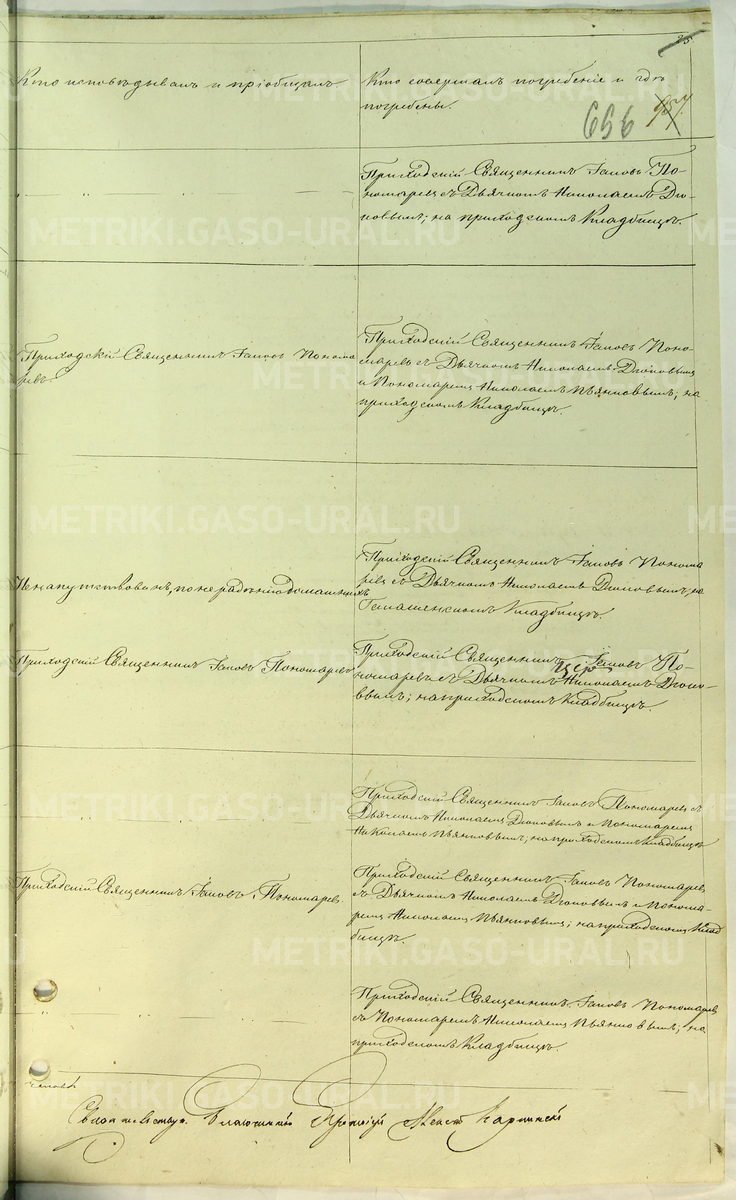 25
Кто исповѣдывалъ и пріобщалъ.
Кто совершалъ погребеніе и гдѣ
погребены.
656
957.
Приходскій Священникъ Іаковъ По-
номаревъ съ Дьячкомъ Николаемъ
на приходскомъ Кладбищѣ.
Приходскій Священникъ Іаковъ Понома
ревъ.
Приходскій Священникъ Іаковъ Поно-
маревъ съ Дьячкомъ Николаемъ
и Пономаремъ Николаемъ Пьянковымъ; на
приходскомъ Кладбищѣ.
Ненапутствованъ, по нерадѣнію домашнихъ
Приходскій Священникъ Іаковъ Понома
ревъ съ Дьячкомъ Николаемъ на
Кладбищѣ.
Приходскій Священникъ Іаковъ Пономаревъ
Приходскій Священникъ Іаковъ По-
номаревъ съ Дьячкомъ Николаемъ
на приходскомъ Кладбищѣ.
Приходскій Священникъ Іаковъ Пономаревъ съ
Дьячкомъ Николаемъ и Пономаремъ
Николаемъ Пьянковымъ, на приходскомъ Кладбищѣ
Приходскій Священникъ Іаковъ Пономаревъ
Приходскій Священникъ Іаковъ Пономаревъ
съ Дьячкомъ Николаемъ и Понома-
ремъ Николаемъ Пьянковымъ; на приходскомъ Клад
бищѣ.
Приходскій Священникъ Іаковъ Пономаревъ
съ Пономаремъ Николаемъ Пьянковымъ; на
приходскомъ Кладбищѣ.
Благочинный Протоіерей
METRIKI.GASO-URAL.RU